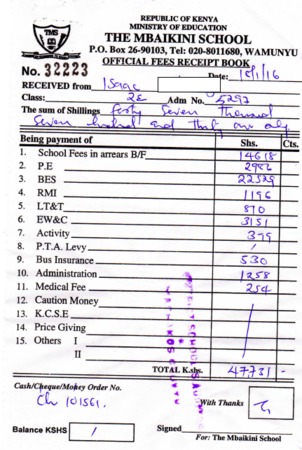 REPUBLIC OF KENYA
MINISTRY OF EDUCATION
TMS
THE MBAIKINI SCHOOL
P.O. Box 26-90103, Tel: 020-8011680, WAMUNYU
OFFICIAL FEES RECEIPT BOOK
No. 32223 Date: 15/1/16
RECEIVED from Isaac
Class: 2E Adm No. 5292
The sum of Shillings forty seven thousand
Seven hundred and thirty one only
Being payment of Shs. Cts.
1. School Fees in arrears B/F 14618
2. P.E 2982
3. BES 22529
4. RMI 1196
5. LT&T 870
6. EW&C 3151
7. Activity 399
8. P.T.A. Levy /
9. Bus Insurance 530
10. Administration 1258
11. Medical Fee 254
12. Caution Money
13. K.C.S.E
14. Price Giving
15. Others I
II
TOTAL K.shs. 47731 -
Cash/Cheque/Money Order No.
Ch 101561.
With Thanks
Balance KSHS /
Signed
For: The Mbaikini School